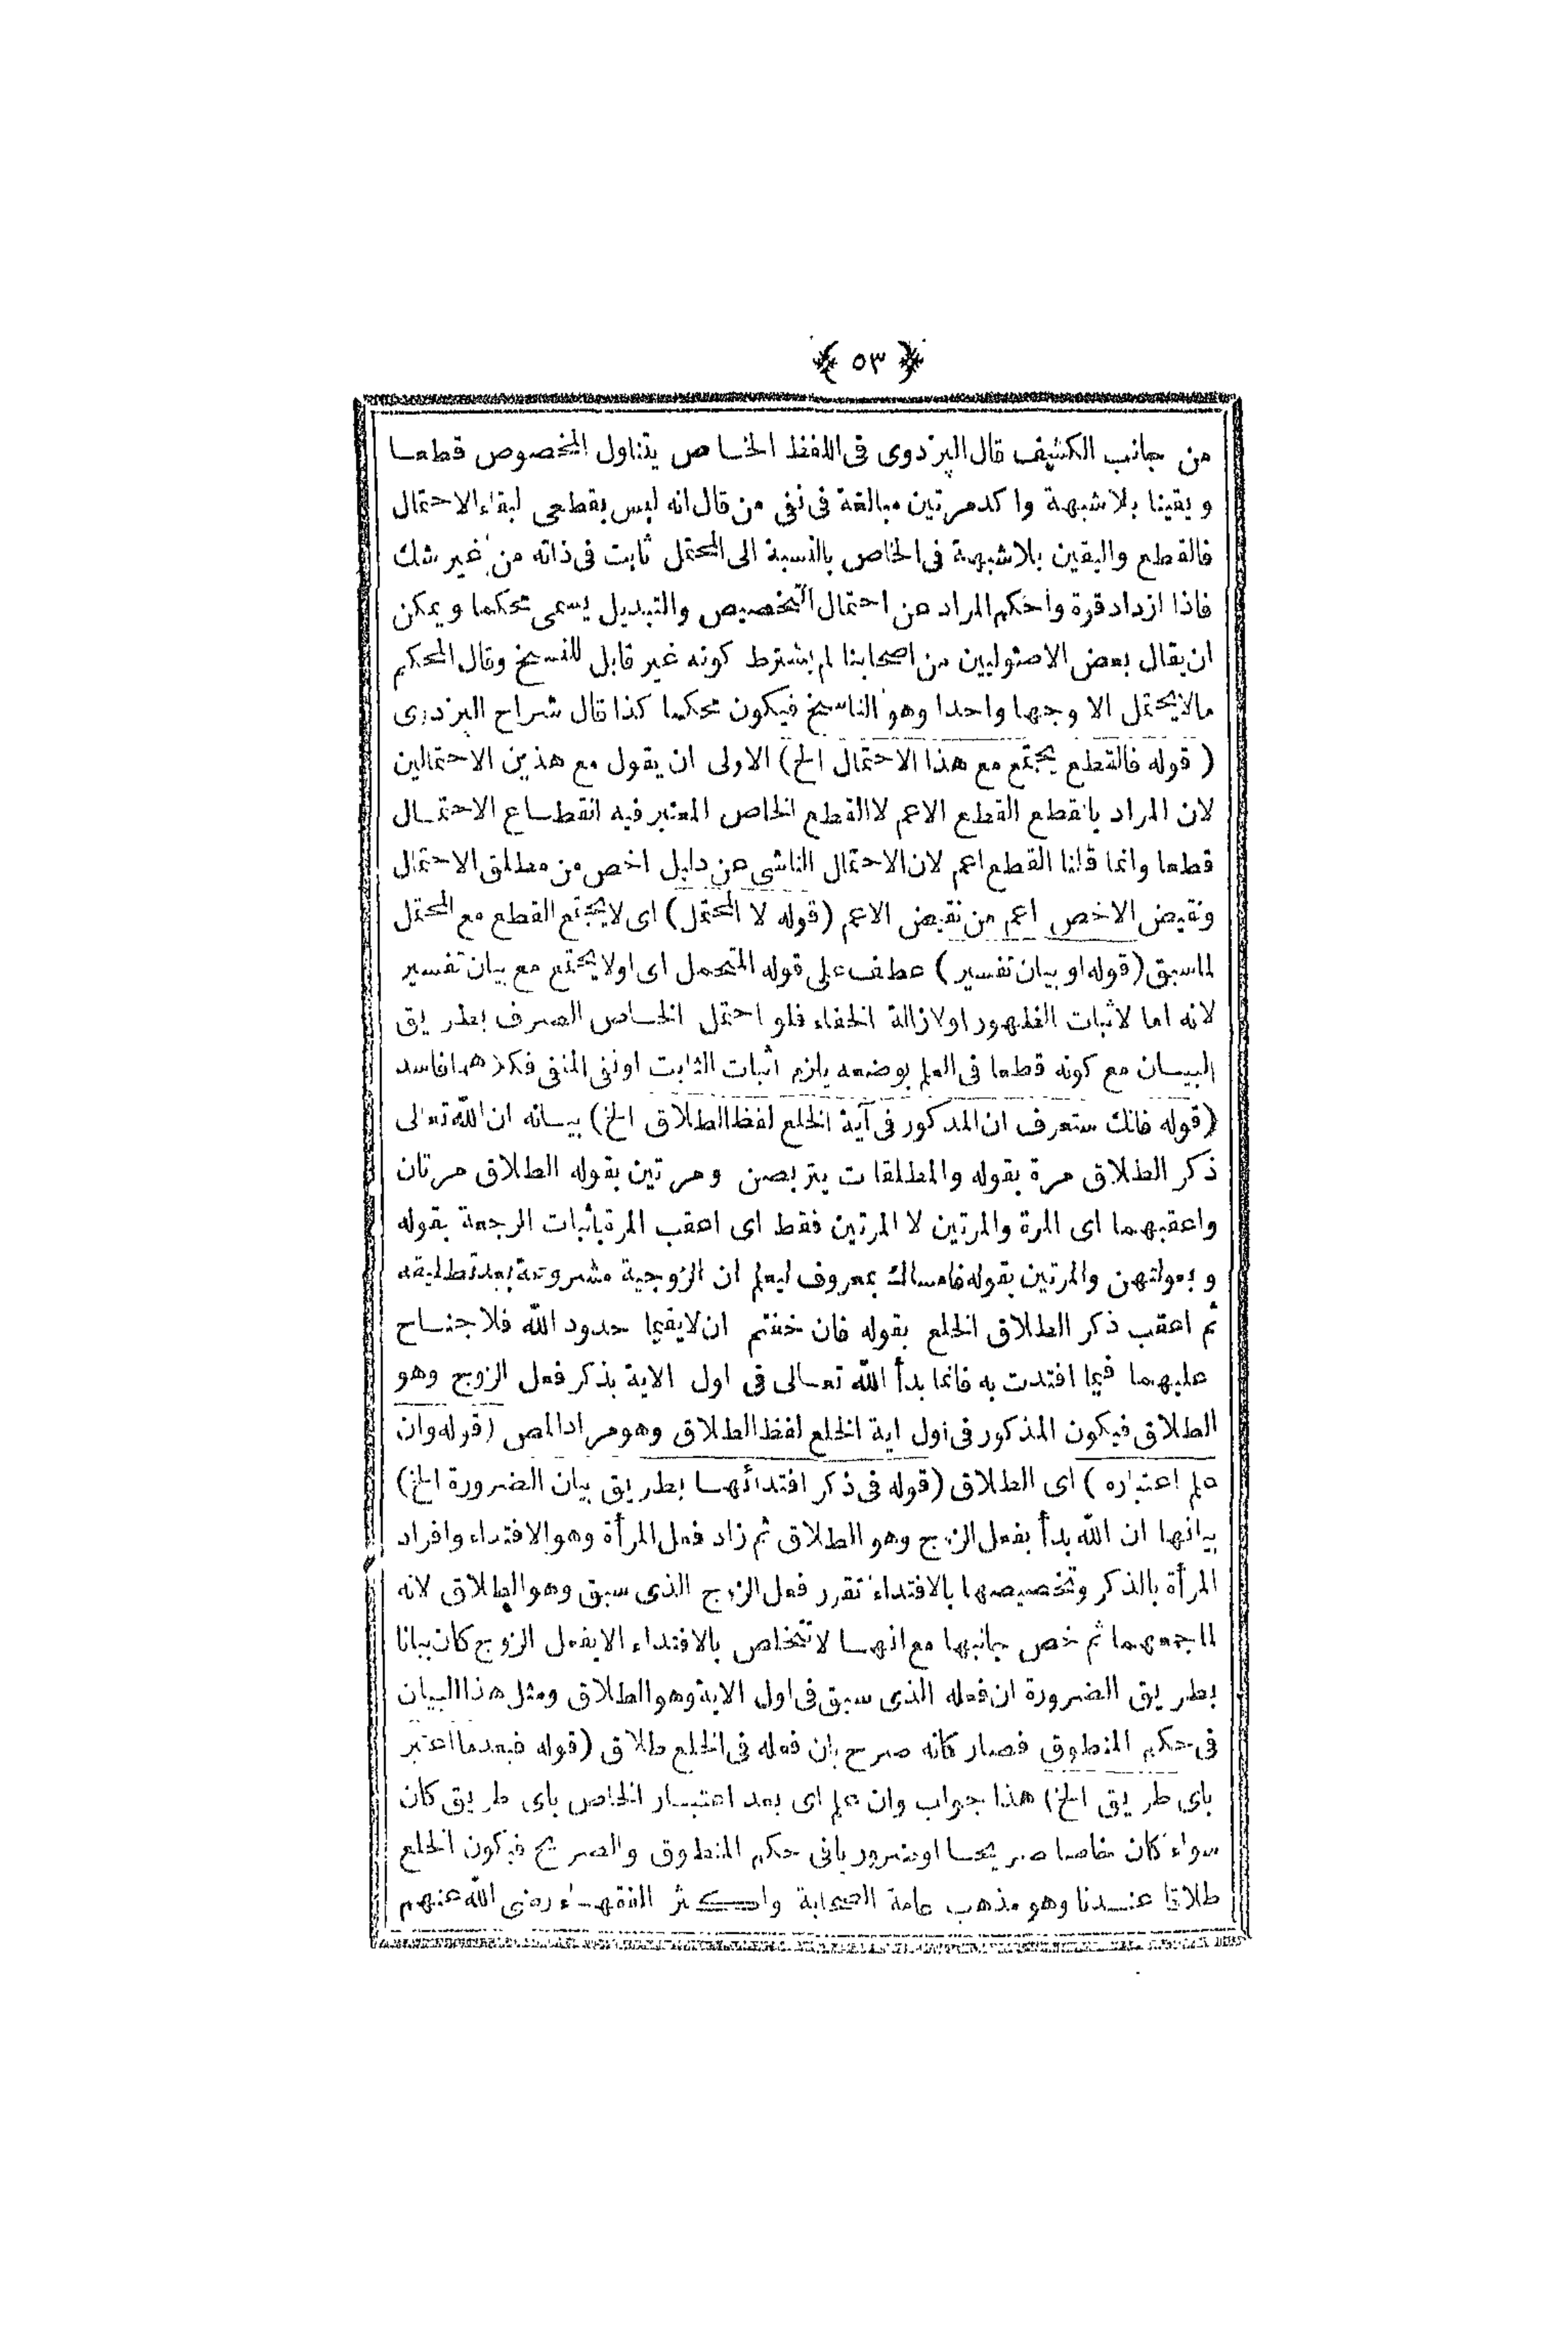 ﴿ ٥٣ ﴾
من جانب الكشف قال البزدوى فى اللفظ الخاص يتناول المخصوص قطعا
ويقينا بلاشبهة واكد مرتين مبالغة فى نفى من قال انه ليس بقطعى لبقاء الاحتمال
فالقطع واليقين بلاشبهة فى الخاص بالنسبة الى المحتمل ثابت فى ذاته من غير شك
فاذا ازداد قوة واحكم المراد عن احتمال التخصيص والتبديل يسمى محكما ويمكن
ان يقال بعض الاصوليين من اصحابنا لم يشترط كونه غير قابل للنسخ وقال المحكم
مالايحتمل الا وجها واحدا وهو الناسخ فيكون محكما كذا قال شراح البزدوى
( قوله فالقطع يجتمع مع هذا الاحتمال الخ) الاولى ان يقول مع هذين الاحتمالين
لان المراد بالقطع القطع الاعم لاالقطع الخاص المعتبر فيه انقطاع الاحتمال
قطعا وانما قلنا القطع اعم لان الاحتمال الناشى عن دليل اخص من مطلق الاحتمال
ونقيض الاخص اعم من نقيض الاعم (قوله لا المحتمل) اى لايجتمع القطع مع المحتمل
لماسبق (قوله او بيان تفسير) عطف على قوله المتحمل اى اولايجتمع مع بيان تفسير
لانه اما لاثبات الظهور اولازالة الخفاء فلو احتمل الخاص الصرف بطريق
البيان مع كونه قطعا فى العلم بوضعه يلزم اثبات الثابت اونفى المنفى فكلاهما فاسد
(قوله فانك ستعرف ان المذكور فى آية الخلع لفظ الطلاق الخ) بيانه ان الله تعالى
ذكر الطلاق مرة بقوله والمطلقات يتربصن ومرتين بقوله الطلاق مرتان
واعقبهما اى المرة والمرتين لا المرتين فقط اى اعقب المرة باثبات الرجعة بقوله
وبعولتهن والمرتين بقوله فامساك بمعروف ليعلم ان الزوجية مشروعة بعد تطليقه
ثم اعقب ذكر الطلاق الخلع بقوله فان خفتم ان لايقيما حدود الله فلا جناح
عليهما فيما افتدت به فانما بدأ الله تعالى فى اول الاية بذكر فعل الزوج وهو
الطلاق فيكون المذكور فى اول اية الخلع لفظ الطلاق وهو مراد المص (قوله وان
علم اعتباره ) اى الطلاق (قوله فى ذكر افتدائها بطريق بيان الضرورة الخ)
بيانها ان الله بدأ بفعل الزوج وهو الطلاق ثم زاد فعل المرأة وهو الافتداء وافراد
المرأة بالذكر وتخصيصها بالافتداء تقرر فعل الزوج الذى سبق وهو الطلاق لانه
لما جمعهما ثم خص جانبها مع انهما لاتتخلص بالافتداء الابفعل الزوج كان بيانا
بطريق الضرورة ان فعله الذى سبق فى اول الاية وهو الطلاق ومثل هذا البيان
فى حكم المنطوق فصار كانه صرح بان فعله فى الخلع طلاق (قوله فبعد ما اعتبر
باى طريق الخ) هذا جواب وان علم اى بعد اعتبار الخاص باى طريق كان
سواء كان خاصا صريحا اوضروريا فى حكم المنطوق والصريح فيكون الخلع
طلاقا عندنا وهو مذهب عامة الصحابة واكثر الفقهاء رضى الله عنهم